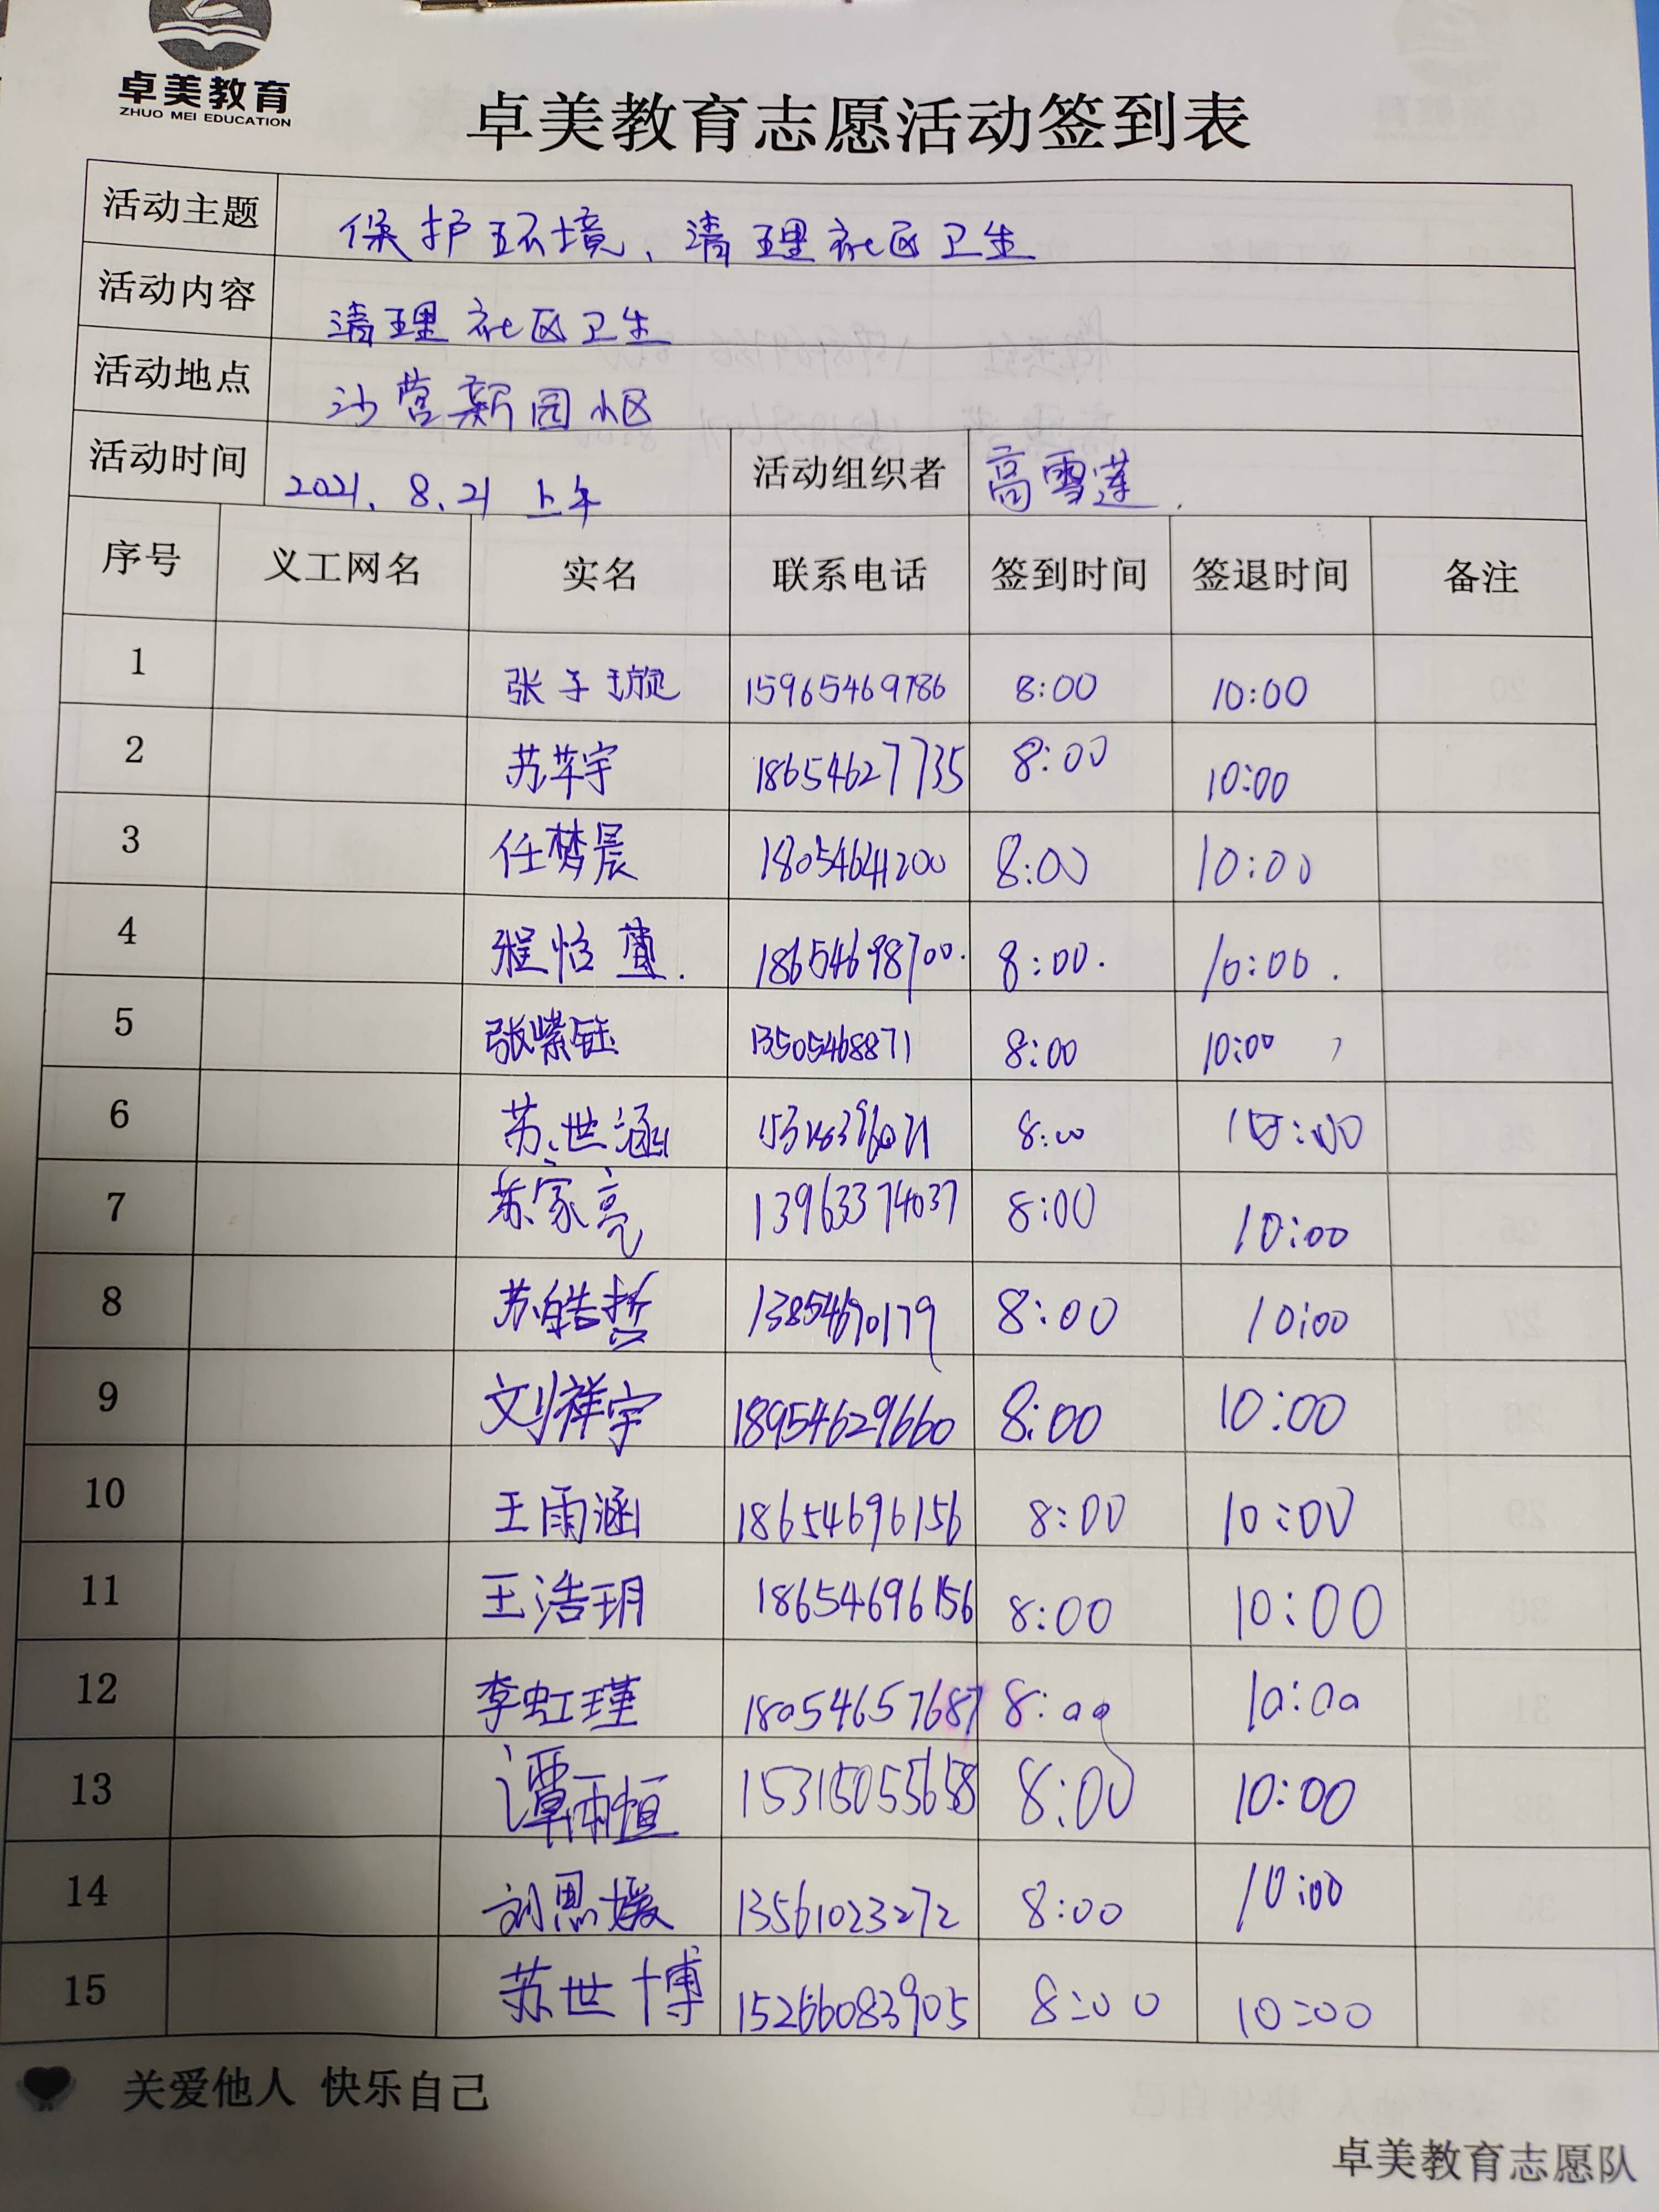 卓美教育
ZHUO MEI EDUCATION
卓美教育志愿活动签到表
活动主题 保护环境、清理社区卫生
活动内容 清理社区卫生
活动地点 沙营新园小区
活动时间 2021.8.21 上午 活动组织者 高雪莲.
序号 义工网名 实名 联系电话 签到时间 签退时间 备注
1 张子璇 15965469786 8:00 10:00
2 苏苹宇 18654627735 8:00 10:00
3 任梦晨 18054641200 8:00 10:00
4 程怡 18654698700. 8:00. 10:00.
5 张紫钰 13505468871 8:00 10:00
6 苏世涵 8:00 10:00
7 苏家亮 13963374037 8:00 10:00
8 苏皓哲 13854690179 8:00 10:00
9 刘祥宇 18954629660 8:00 10:00
10 王雨涵 18654696156 8:00 10:00
11 王浩玥 18654696156 8:00 10:00
12 李虹瑾 18054657687 8:00 10:00
13 谭雨恒 15315055658 8:00 10:00
14 刘思媛 13561023272 8:00 10:00
15 苏世博 15266083905 8:00 10:00
关爱他人 快乐自己
卓美教育志愿队